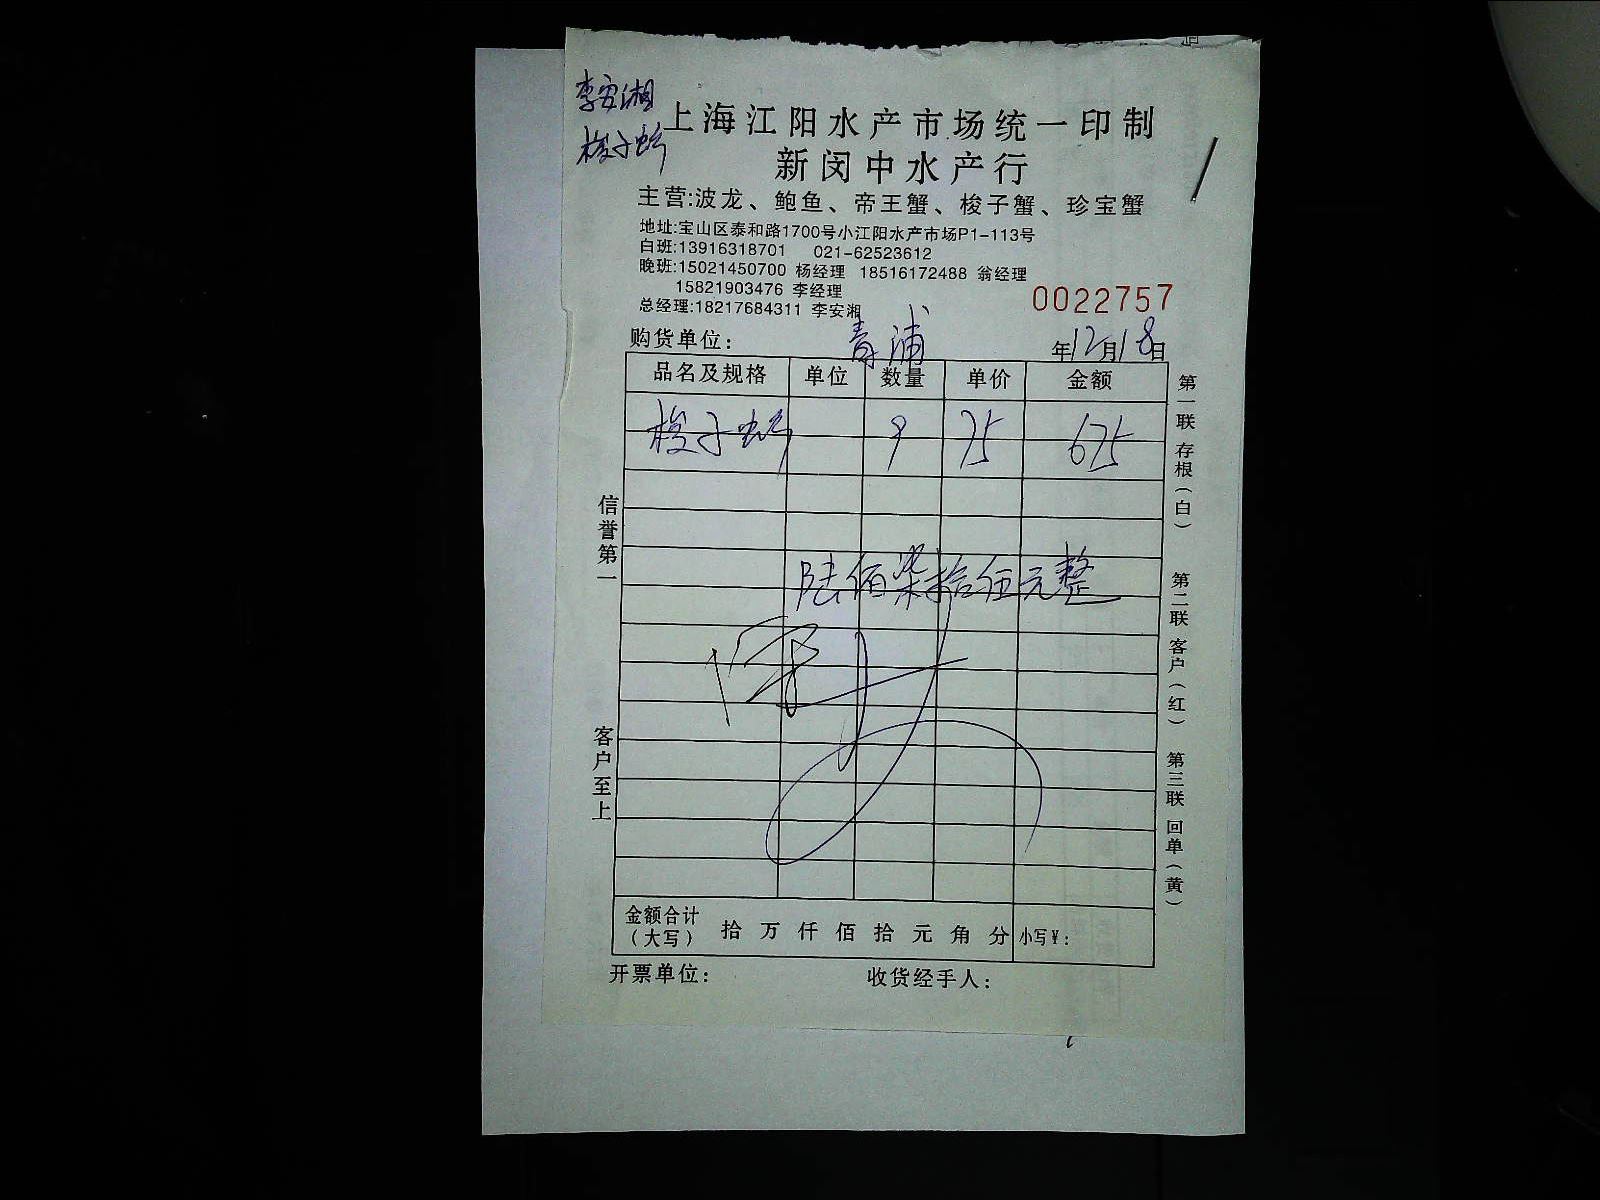 李安湘
梭子蟹
上海江阳水产市场统一印制
新闵中水产行
主营:波龙、鲍鱼、帝王蟹、梭子蟹、珍宝蟹
地址:宝山区泰和路1700号小江阳水产市场P1-113号
白班:13916318701 021-62523612
晚班:15021450700 杨经理 18516172488 翁经理
15821903476 李经理
总经理:18217684311 李安湘
0022757
购货单位: 青浦 年12月18日
品名及规格 单位 数量 单价 金额
梭子蟹 9 75 675
陆佰柒拾伍元整
金额合计(大写) 拾 万 仟 佰 拾 元 角 分 小写¥:
开票单位: 收货经手人:
信誉第一
客户至上
第一联 存根(白)
第二联 客户(红)
第三联 回单(黄)